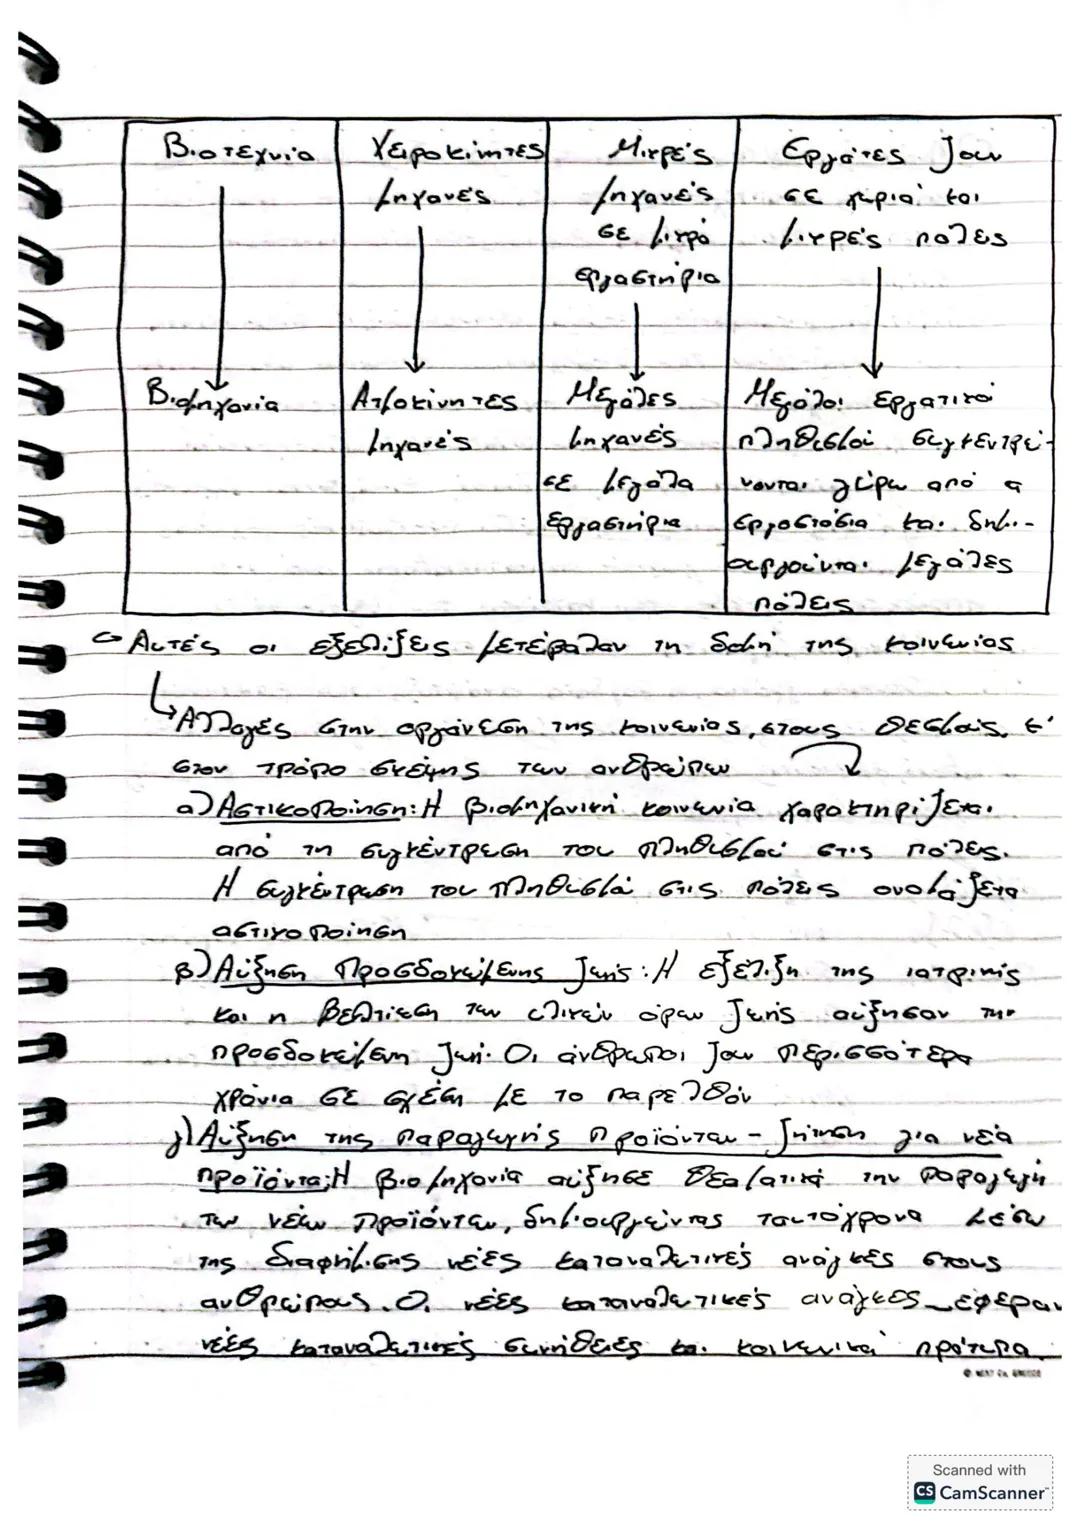 Βιοτεχνία
Χειροκίνητες
μηχανές
Μικρές
μηχανές
σε μικρό
εργαστήρια
Εργάτες ζουν
σε χωριά και
μικρές πόλεις
Βιομηχανία
Ατμοκίνητες
μηχανές
Μεγάλες
μηχανές
σε μεγάλα
εργαστήρια
Μεγάλοι εργατικοί
πληθυσμοί συγκεντρώ-
νονται γύρω από α
εργοστάσια και δημι-
ουργούνται μεγάλες
πόλεις
Αυτές οι εξελίξεις μετέβαλαν τη δομή της κοινωνίας
Αλλαγές στην οργάνωση της κοινωνίας, στους θεσμούς, κ'
στον τρόπο σκέψης των ανθρώπων
α) Αστικοποίηση: Η βιομηχανική κοινωνία χαρακτηρίζεται
από τη συγκέντρωση του πληθυσμού στις πόλεις.
Η συγκέντρωση του πληθυσμού στις πόλεις ονομάζεται
αστικοποίηση
β) Αύξηση Προσδοκώμενης ζωής: Η εξέλιξη της ιατρικής
και η βελτίωση των υλικών όρων ζωής αύξησαν την
προσδοκώμενη ζωή. Οι άνθρωποι ζουν περισσότερα
χρόνια σε σχέση με το παρελθόν
γ) Αύξηση της παραγωγής προϊόντων - ζήτηση για νέα
προϊόντα: Η βιομηχανία αύξησε θεαματικά την παραγωγή
των νέων προϊόντων, δημιουργώντας ταυτόχρονα μέσω
της διαφήμισης νέες καταναλωτικές ανάγκες στους
ανθρώπους. Οι νέες καταναλωτικές ανάγκες έφεραν
νέες καταναλωτικές συνήθειες και κοινωνικά πρότυπα
Scanned with
CS CamScanner